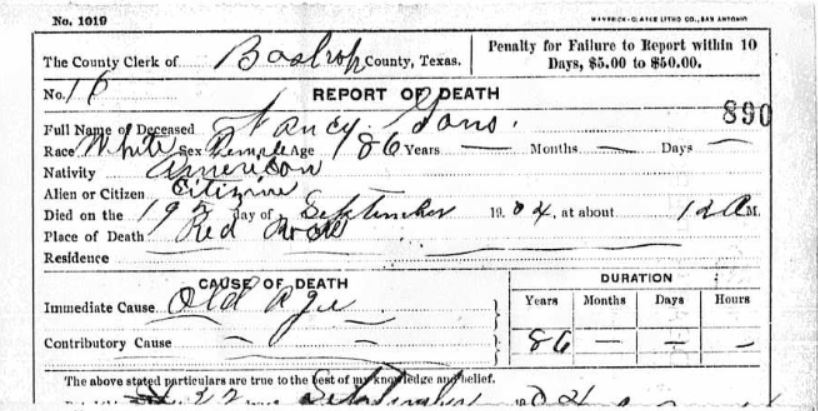 No. 1019 MAVERICK-CLARKE LITHO CO., SAN ANTONIO
The County Clerk of Bastrop County, Texas.
Penalty for Failure to Report within 10
Days, $5.00 to $50.00.
No. 16 REPORT OF DEATH
890
Full Name of Deceased Nancy Gans.
Race White Sex Female Age 86 Years — Months — Days —
Nativity American
Alien or Citizen Citizine
Died on the 19 day of September 1904, at about 12 A M.
Place of Death Red Rock
Residence
CAUSE OF DEATH
DURATION
Immediate Cause Old Age
Years Months Days Hours
Contributory Cause — —
86 — — —
The above stated particulars are true to the best of my knowledge and belief.
22 September 04